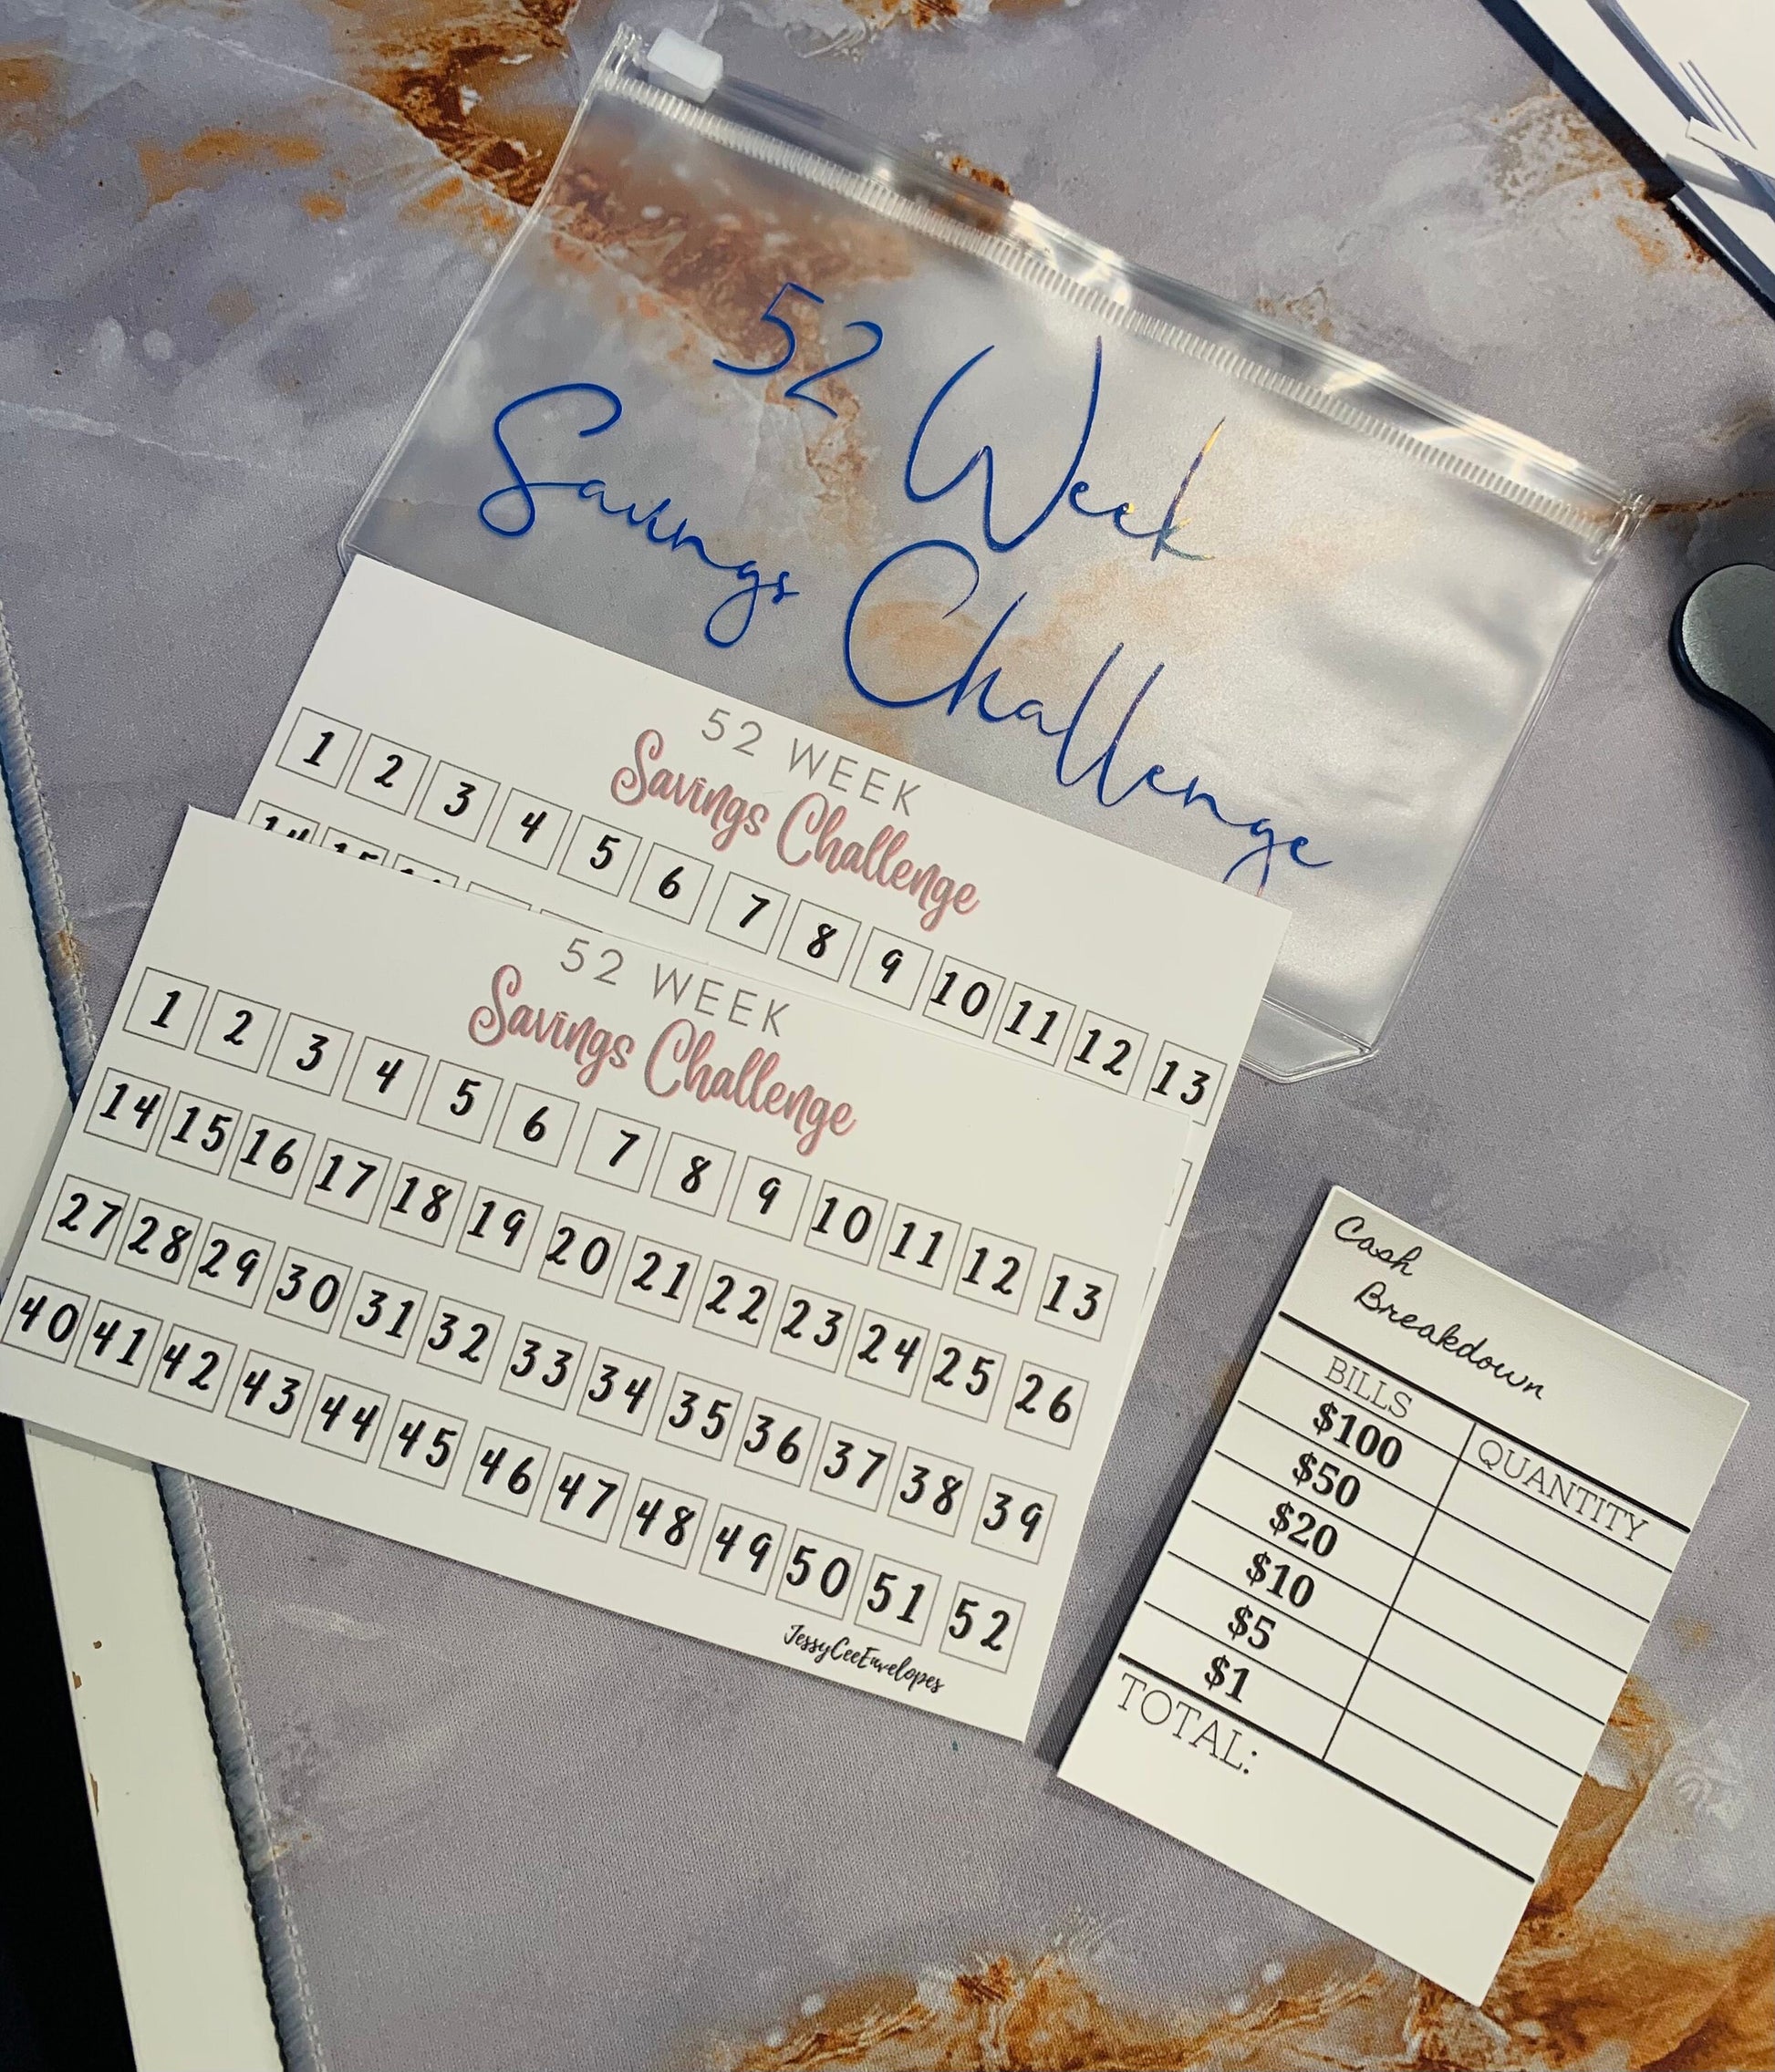 52 Week
Savings Challenge
52 WEEK
Savings Challenge
1 2 3 4 5 6 7 8 9 10 11 12 13
14 15
52 WEEK
Savings Challenge
1 2 3 4 5 6 7 8 9 10 11 12 13
14 15 16 17 18 19 20 21 22 23 24 25 26
27 28 29 30 31 32 33 34 35 36 37 38 39
40 41 42 43 44 45 46 47 48 49 50 51 52
JessyCeeEnvelopes
Cash
Breakdown
BILLS QUANTITY
$100
$50
$20
$10
$5
$1
TOTAL: